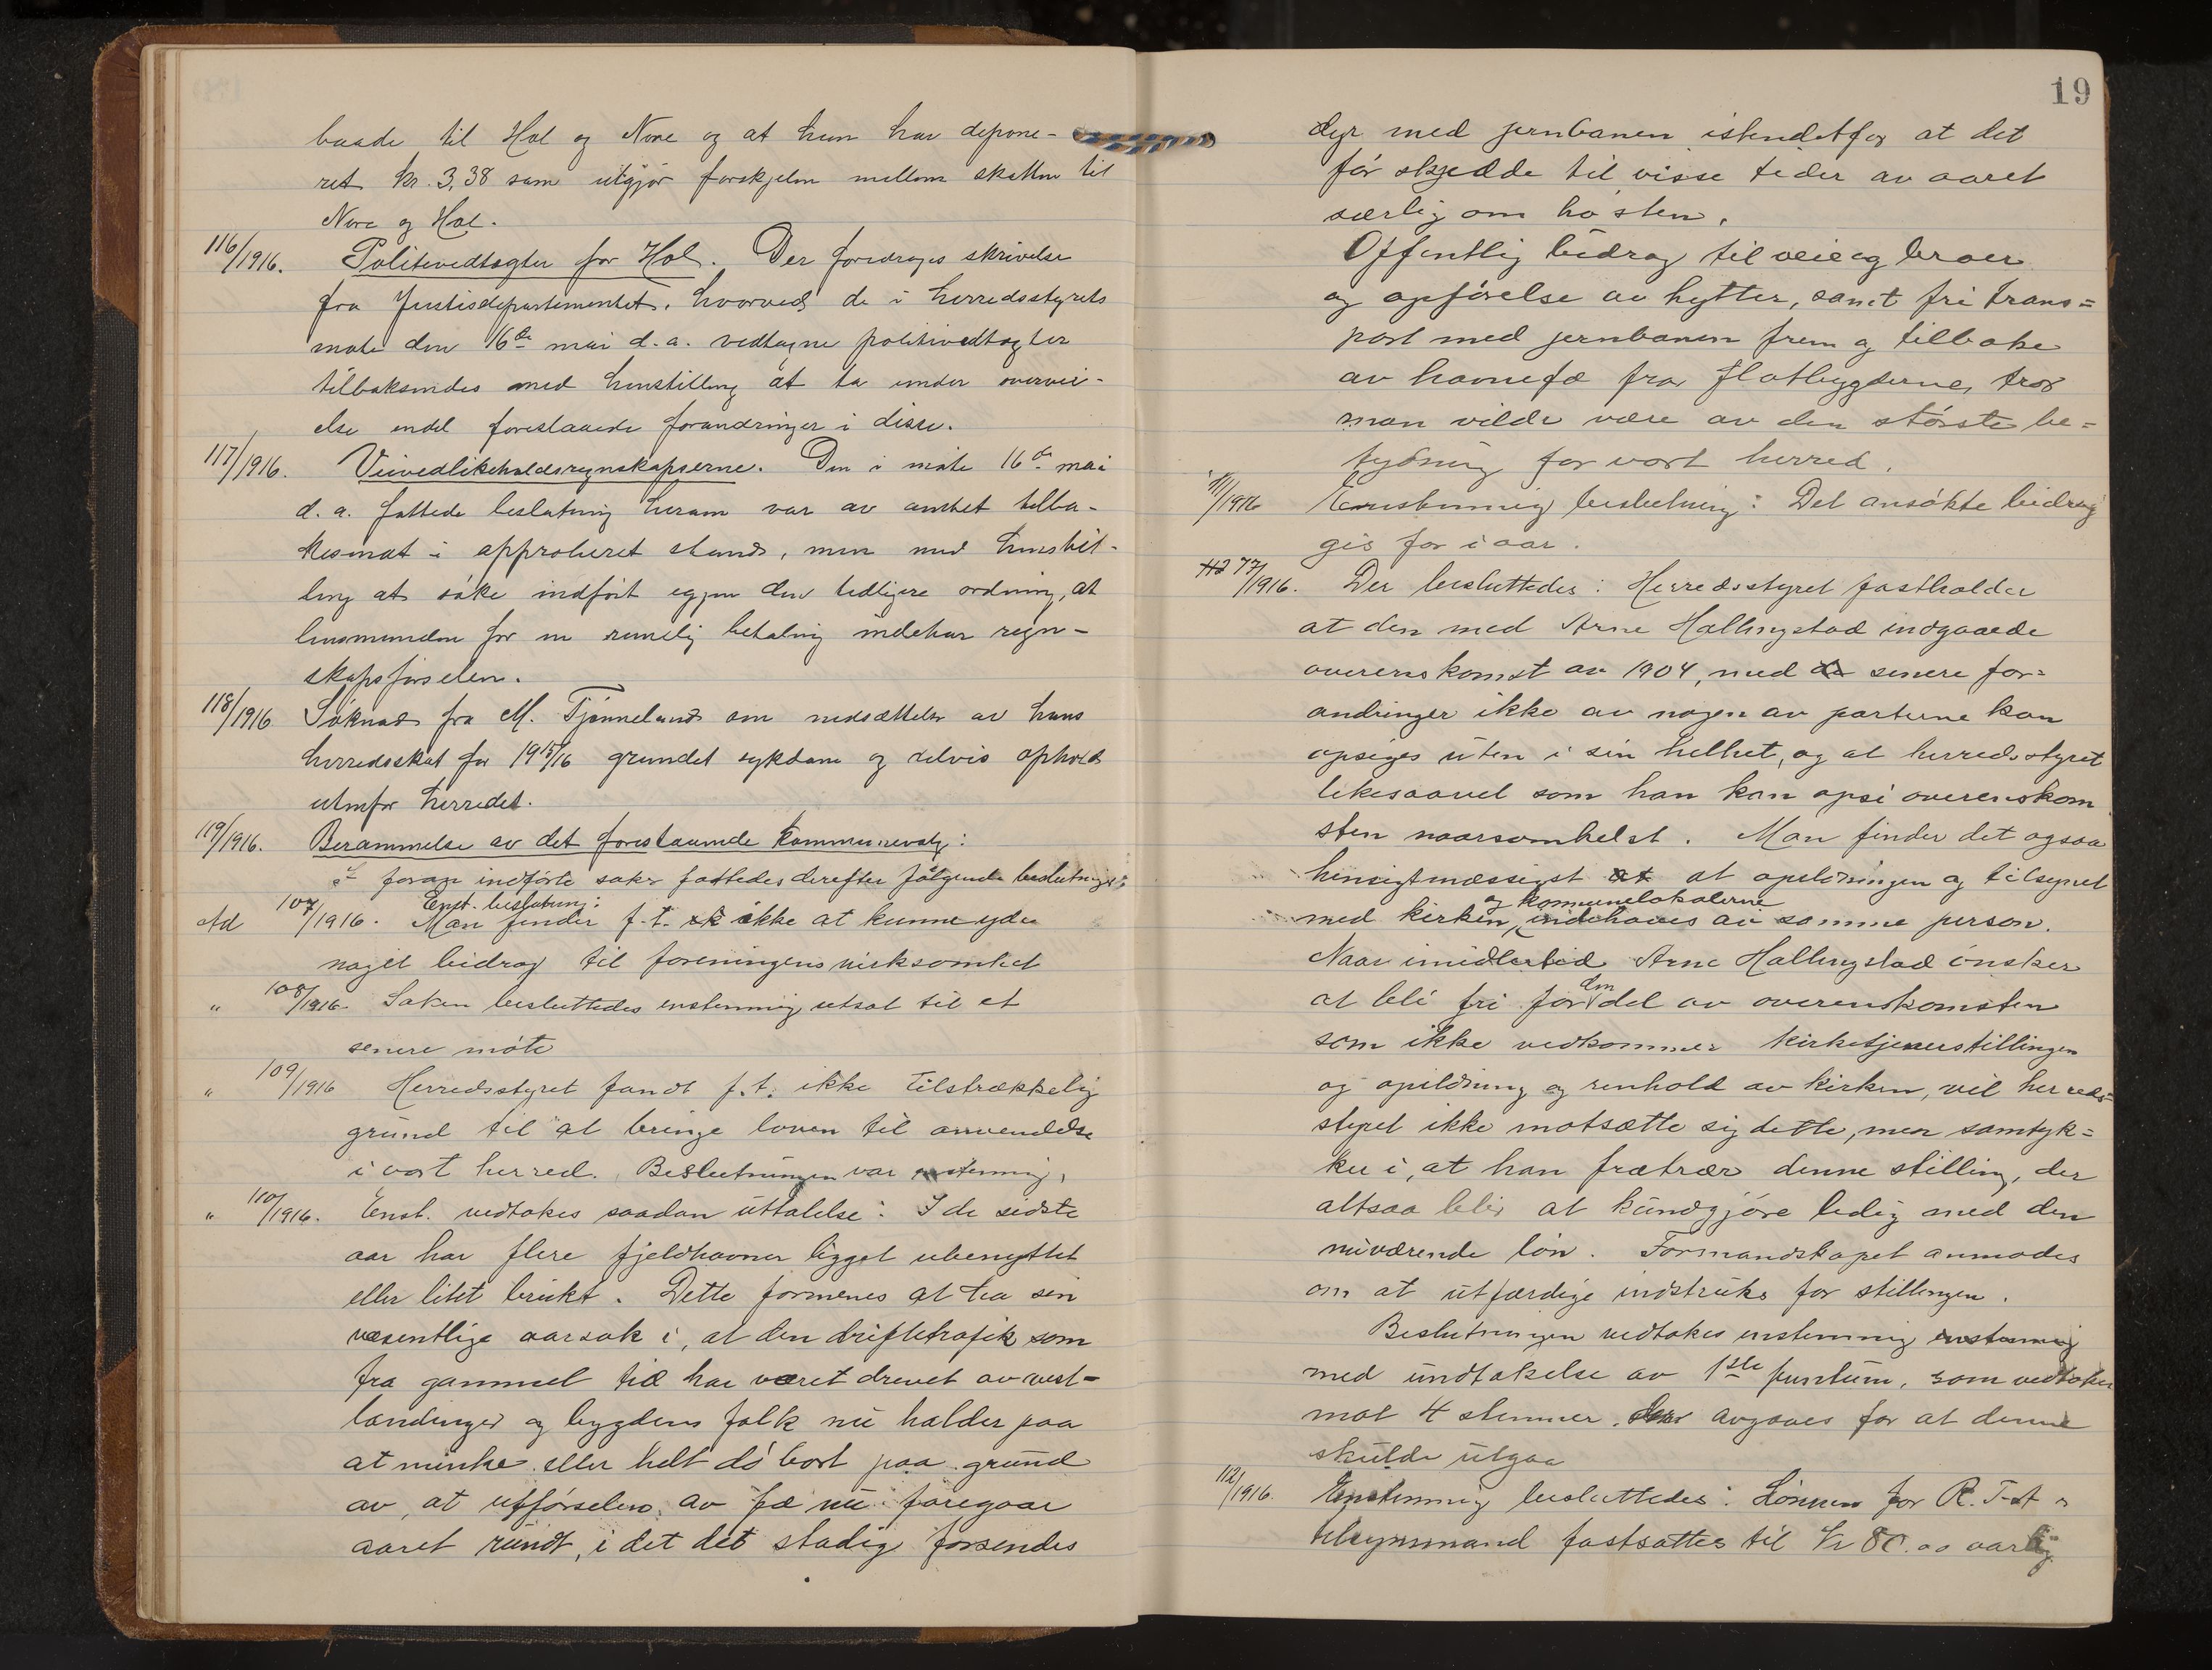 baade til Hol og Nore og at hun har depone-
ret kr. 3,38 som utgjør forskjelen mellem skatten til
Nore og Hol.
116/1916. Politivedtægter for Hol. Der foredroges skrivelse
fra Justisdepartementet, hvorved de i herredsstyrets
møte den 16de mai d.a. vedtagne politivedtægter
tilbakesendes med henstilling at ta under overvei-
else endel foreslaaede forandringer i disse.
117/1916. Veivedlikeholdsregnskaperne. Den i møte 16de mai
d.a. fattede beslutning herom var av amtet tilba-
kesendt i approberet stand, men med henstil-
ling at søke indført igjen den tidligere ordning, at
lensmanden for en rimelig betaling indehar regn-
skapsførselen.
118/1916 Søknad fra M. Tjønneland om nedsættelse av hans
herredsskat for 1915/16 grundet sykdom og delvis ophold
utenfor herredet.
119/1916. Berammelse av det forestaaende kommunevalg:
I foran indførte saker fattedes derefter følgende beslutninger:
Enst. beslutning:
Ad 107/1916. Man finder f.t. ikke at kunne yde
noget bidrag til foreningens virksomhet
" 108/1916. Saken besluttedes enstemmig utsat til et
senere møte
" 109/1916 Herredsstyret fandt f.t. ikke tilstrækkelig
grund til at bringe loven til anvendelse
i vort herred. Beslutningen var enstemmig.
" 110/1916. Enst. vedtokes saadan uttalelse: I de sidste
aar har flere fjeldhavner ligget ubenyttet
eller litet brukt. Dette formenes at ha sin
væsentlige aarsak i, at den driftetrafik som
fra gammel tid har været drevet av vest-
lændinger og bygdens folk nu holder paa
at minke eller helt dø bort paa grund
av, at utførselen av fæ nu foregaar
aaret rundt, i det det stadig forsendes
19
dyr med jernbanen istendetfor at det
før skjedde til visse tider av aaret
særlig om høsten.
Offentlig bidrag til veie og broer
og opførelse av hytter, samt fri trans=
port med jernbanen frem og tilbake
av havnefæ fra flatbygderne, tror
man vilde være av den største be=
tydning for vort herred.
111/1916 Enstemmig beslutning: Det ansøkte bidrag
gis for iaar.
112 77/1916. Der besluttedes: Herredsstyret fastholder
at den med Arne Hallingstad indgaaede
overenskomst av 1904, med de senere for=
andringer ikke av nogen av parterne kan
opsiges uten i sin helhet, og at herredsstyret
likesaavel som han kan opsi overenskom
sten naarsomhelst. Man finder det ogsaa
hensigtmæssigst at at opildningen og tilsynet
og kommunelokalerne
med kirken, indehaves av samme person.
Naar imidlertid Arne Hallingstad ønsker
at bli fri for den del av overenskomsten
som ikke vedkommer kirketjenerstillingen
og opildning og renhold av kirken, vil herreds=
styret ikke motsætte sig dette, men samtyk=
ker i, at han fratrær denne stilling, der
altsaa blir at kundgjøre ledig med den
nuværende løn. Formandskapet anmodes
om at utfærdige instruks for stillingen.
Beslutningen vedtokes enstemmig enstemmig
med undtakelse av 1ste punktum, som vedtokes
mot 4 stemmer, der avgaves for at denne
skulde utgaa
112/1916. Enstemmig besluttedes: Lønnen for R. T-A
tilsynsmand fastsættes til Kr 80.00 aarlig